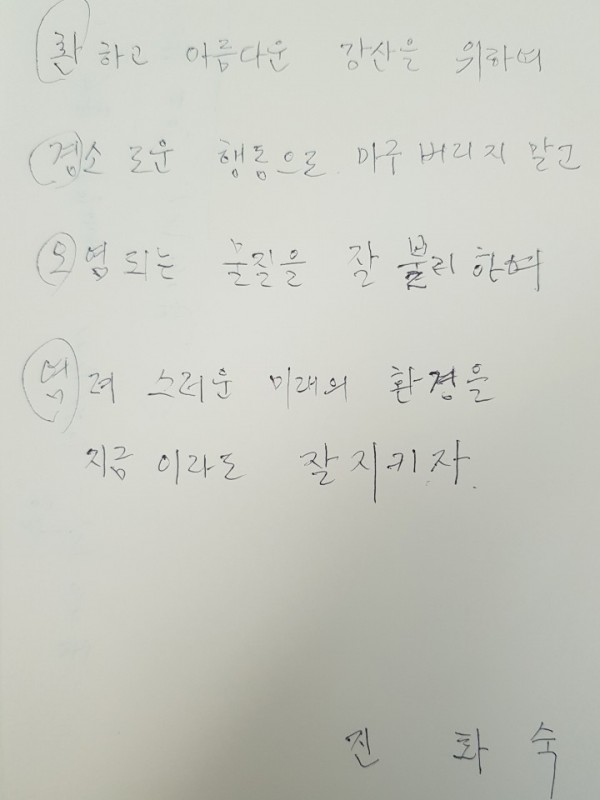 환하고 아름다운 강산을 위하여
경소로운 행동으로 마구 버리지 말고
오염되는 물질을 잘 불리하여
염려스러운 미래의 환경을
지금이라도 잘 지키자.
진화숙